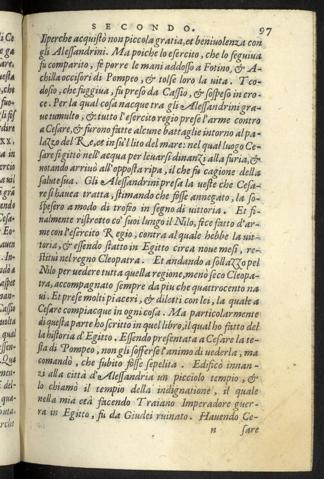 SECONDO. 97
Ilperche acquistò non piccola gratia, et beniuolenza con
gli Alessandrini. Ma poiche lo esercito, che lo seguiua
fu comparito, fe porre le mani addosso a Fotino, & A-
chilla occisori di Pompeo, & tolse loro la uita. Teo-
dosio, che fuggiua, fu preso da Cassio, & sospeso in cro-
ce. Per la qual cosa nacque tra gli Alessandrini gra-
ue tumulto, & tutto l'esercito regio prese l'arme contro
a Cesare, & furono fatte alcune battaglie intorno al pa-
lazzo del Re, et in su'l lito del mare: nel qual luogo Ce-
sare si gittò nell'acqua per leuarsi dinanzi alla furia, &
notando arriuò all'opposta ripa, il che fu cagione della
salute sua. Gli Alessandrini presa la ueste che Cesa-
re si hauea tratta, stimando che fosse annegato, la so-
spesero a modo di trofio in segno di uittoria. Et fi-
nalmente ristretto co' suoi lungo il Nilo, fece fatto d'ar-
me con l'esercito Regio, contra al quale hebbe la uit-
toria, & essendo stato in Egitto circa noue mesi, re-
stituì nel regno Cleopatra. Et andando a sollazzo pel
Nilo per uedere tutta quella regione, menò seco Cleopa-
tra, accompagnato sempre da piu che quattrocento na
ui. Et prese molti piaceri, & diletti con lei, la quale a
Cesare compiacque in ogni cosa. Ma particolarmente
di questa parte ho scritto in quel libro, il qual ho fatto del
la historia d'Egitto. Essendo presentata a Cesare la te-
sta di Pompeo, non gli sofferse l'animo di uederla, ma
comandò, che subito fosse sepelita. Edificò innan-
zi alla città d'Alessandria un picciolo tempio, &
lo chiamò il tempio della indignatione, il quale
nella mia età facendo Traiano Imperadore guer-
ra in Egitto, fu da Giudei ruinato. Hauendo Ce-
n sare